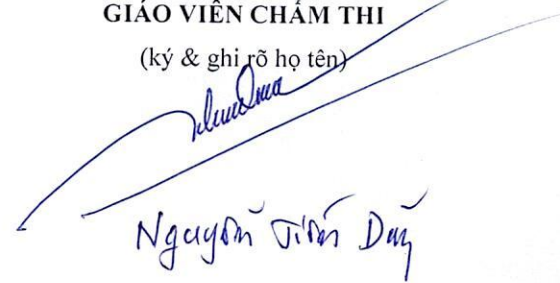 GIÁO VIÊN CHẤM THI
(ký & ghi rõ họ tên)
Nguyễn Tiến Dũng